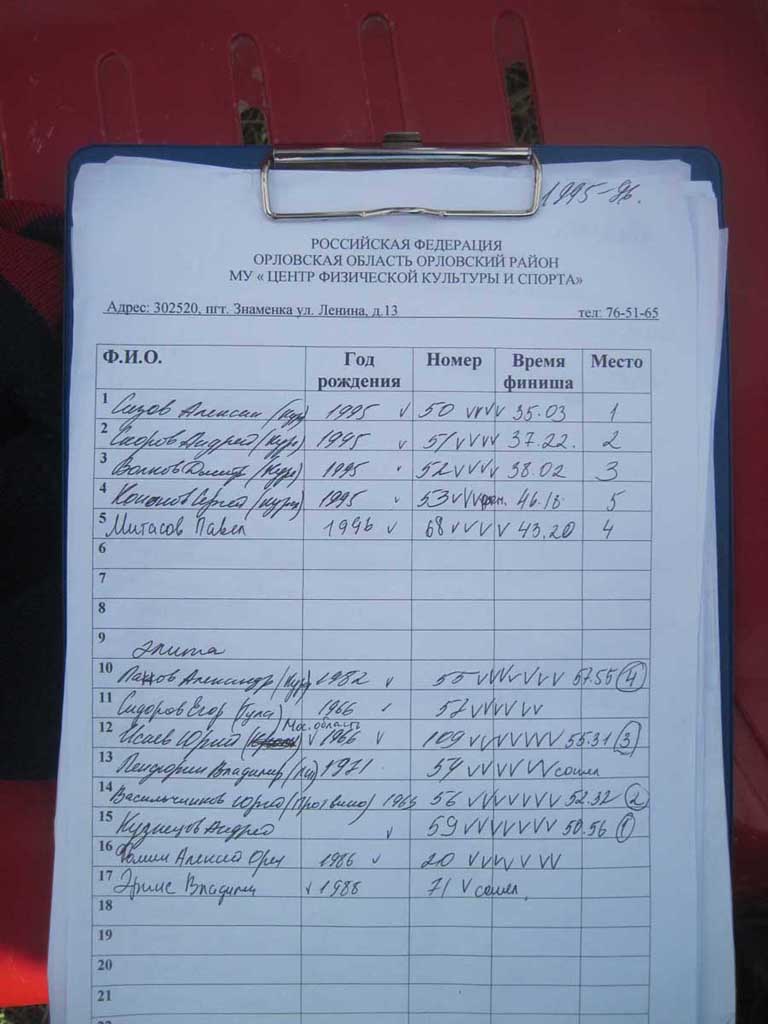 1995-96.
РОССИЙСКАЯ ФЕДЕРАЦИЯ
ОРЛОВСКАЯ ОБЛАСТЬ ОРЛОВСКИЙ РАЙОН
МУ « ЦЕНТР ФИЗИЧЕСКОЙ КУЛЬТУРЫ И СПОРТА»
Адрес: 302520, пгт. Знаменка ул. Ленина, д.13 тел: 76-51-65
Ф.И.О. Год рождения Номер Время финиша Место
1 Сизов Алексей (Кур) 1995 v 50 vvvv 35.03 1
2 Скоров Андрей (Курс) 1995 v 51 vvvv 37.22. 2
3 Волков Дмит (Курс) 1995 v 52 vvvv 38.02 3
4 Сергей (Курск) 1995 v 53 vvv 46.18 5
5 Митасов Павел 1996 v 68 vvvv 43.20 4
6
7
8
9 элита
10 Александр (Кур) 1982 v 55 vvvvvv 57.55 4
11 Сидоров Егор (Тула) 1966 v 57 vvvvv
Мос. область
12 Исаев Юрий v 1966 v 109 vvvvvvv 55.31 3
13 Владимир 1971 54 vvvvv сошел
14 Васильчиков Юрий (Протвино) 1965 56 vvvvvvv 52.32 2
15 Кузнецов Андрей v 59 vvvvvvv 50.56 1
16 Фомин Алексей Орел 1986 v 20 vvvvvv
17 Владими v 1988 71 v сошел
18
19
20
21